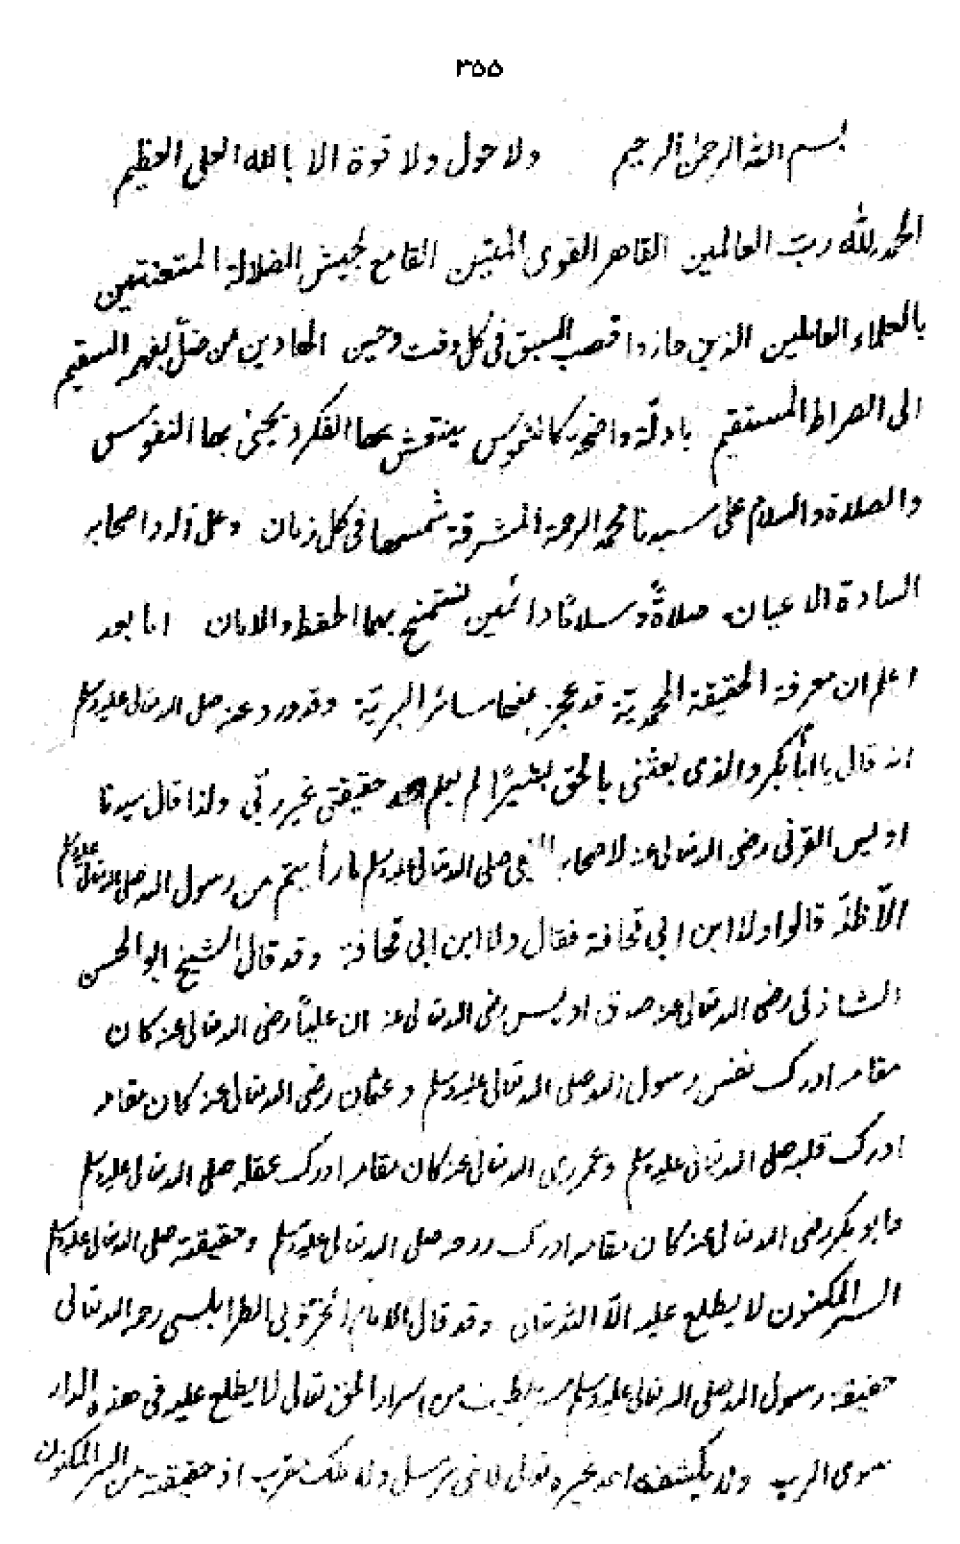 ٣٥٥
بسم الله الرحمن الرحيم ولا حول ولا قوة الا بالله العلى العظيم
الحمد لله ربّ العالمين القاهر القوى المتين القامع لجيش الضلالة المتعنتين
بالعلماء العاملين الذين حازوا قصب السبق فى كل وقت وحين الهادين من ضلّ بفهمه السقيم
الى الصراط المستقيم بادلّة واضحة كالشموس ينتعش بها الفكر وتحيى بها النفوس
والصلاة والسلام على سيدنا محمد الرحمة المشرقة شمسها فى كل زمان وعلى آله واصحابه
السادة الاعيان صلاةً وسلامًا دائمين نستمنح بهما الحفظ والامان اما بعد
اعلم ان معرفة الحقيقة المحمدية قد عجز عنها سائر البريّة وقد ورد عنه صلى الله تعالى عليه وسلم
انه قال يا أبا بكر والذى بعثنى بالحق بشيرًا لم يعلم حقيقتى غير ربّى ولذا قال سيدنا
اويس القرنى رضى الله تعالى عنه لاصحاب النبى صلى الله تعالى عليه وسلم ما رأيتم من رسول الله صلى الله تعالى عليه وسلم
الّا ظلّه قالوا ولا ابن ابى قحافة فقال ولا ابن ابى قحافة وقد قال الشيخ ابو الحسن
الشاذلى رضى الله تعالى عنه صدق اويس رضى الله تعالى عنه ان علياً رضى الله تعالى عنه كان
مقامه ادرك نفس رسول الله صلى الله تعالى عليه وسلم وعثمان رضى الله تعالى عنه كان مقامه
ادرك قلبه صلى الله تعالى عليه وسلم وعمر رضى الله تعالى عنه كان مقامه ادرك عقله صلى الله تعالى عليه وسلم
وابو بكر رضى الله تعالى عنه كان مقامه ادرك روحه صلى الله تعالى عليه وسلم وحقيقته صلى الله تعالى عليه وسلم
السر المكنون لا يطلع عليه الّا الله تعالى وقد قال الامام الطرابلسى رحمه الله تعالى
حقيقة رسول الله صلى الله تعالى عليه وسلم سر لطيف من اسرار الحق تعالى لا يطلع عليه فى هذه الدار
سوى الرب ولم يكشفه احد غيره تعالى لا نبى مرسل ولا ملك مقرب اذ حقيقته من السر المكنون